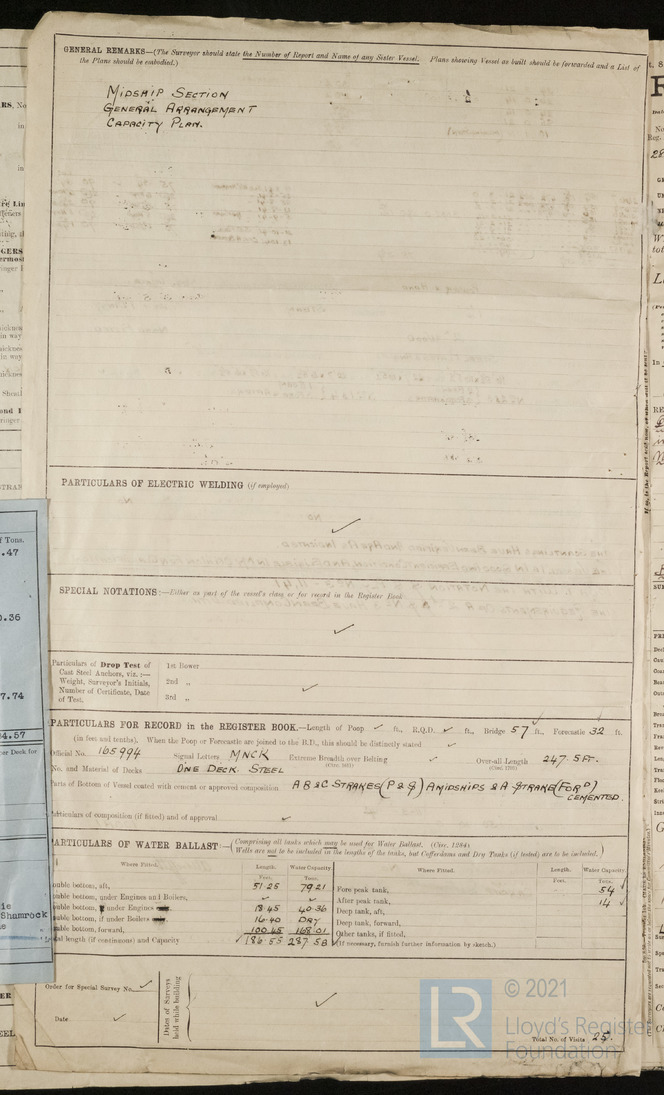 GENERAL REMARKS—(The Surveyor should state the Number of Report and Name of any Sister Vessel. Plans showing Vessel as built should be forwarded and a List of
the Plans should be embodied.)
MIDSHIP SECTION
GENERAL ARRANGEMENT
CAPACITY PLAN.
PARTICULARS OF ELECTRIC WELDING (if employed)
SPECIAL NOTATIONS:—Either as part of the vessel's class or for record in the Register Book
Particulars of Drop Test of
Cast Steel Anchors, viz. :—
Weight, Surveyor's Initials,
Number of Certificate, Date
of Test.
1st Bower
2nd „
3rd „
PARTICULARS FOR RECORD in the REGISTER BOOK.—Length of Poop ✓ ft., R.Q.D. ✓ ft., Bridge 57 ft., Forecastle 32 ft.
(in feet and tenths). When the Poop or Forecastle are joined to the B.D., this should be distinctly stated ✓
Official No. 165994 Signal Letters MNCK Extreme Breadth over Belting ✓ Over-all Length 247.5 FT.
No. and Material of Decks ONE DECK. STEEL
Parts of Bottom of Vessel coated with cement or approved composition A B & C STRAKES (P & S) AMIDSHIPS & A STRAKE (FOR'D) CEMENTED.
Particulars of composition (if fitted) and of approval ✓
PARTICULARS OF WATER BALLAST:—(Comprising all tanks which may be used for Water Ballast. (Circ. 1284)
Wells are not to be included in the lengths of the tanks, but Cofferdams and Dry Tanks (if tested) are to be included.)
Where Fitted. Length. Water Capacity. Where Fitted. Length. Water Capacity.
Feet. Tons. Feet. Tons.
Double bottom, aft, 51.25 79.21 Fore peak tank, 54 ✓
Double bottom, under Engines and Boilers, ✓ ✓ After peak tank, 14 ✓
Double bottom, if under Engines 18.45 40.36 Deep tank, aft,
Double bottom, if under Boilers 16.40 DRY Deep tank, forward,
Double bottom, forward, 100.45 168.01 Other tanks, if fitted,
Total length (if continuous) and Capacity ✓ 186.55 287.58 ✓ (If necessary, furnish further information by sketch.)
Order for Special Survey No. ✓
Date ✓
Dates of Surveys
held while building
Total No. of Visits 25.
© 2021
Lloyd's Register
Foundation